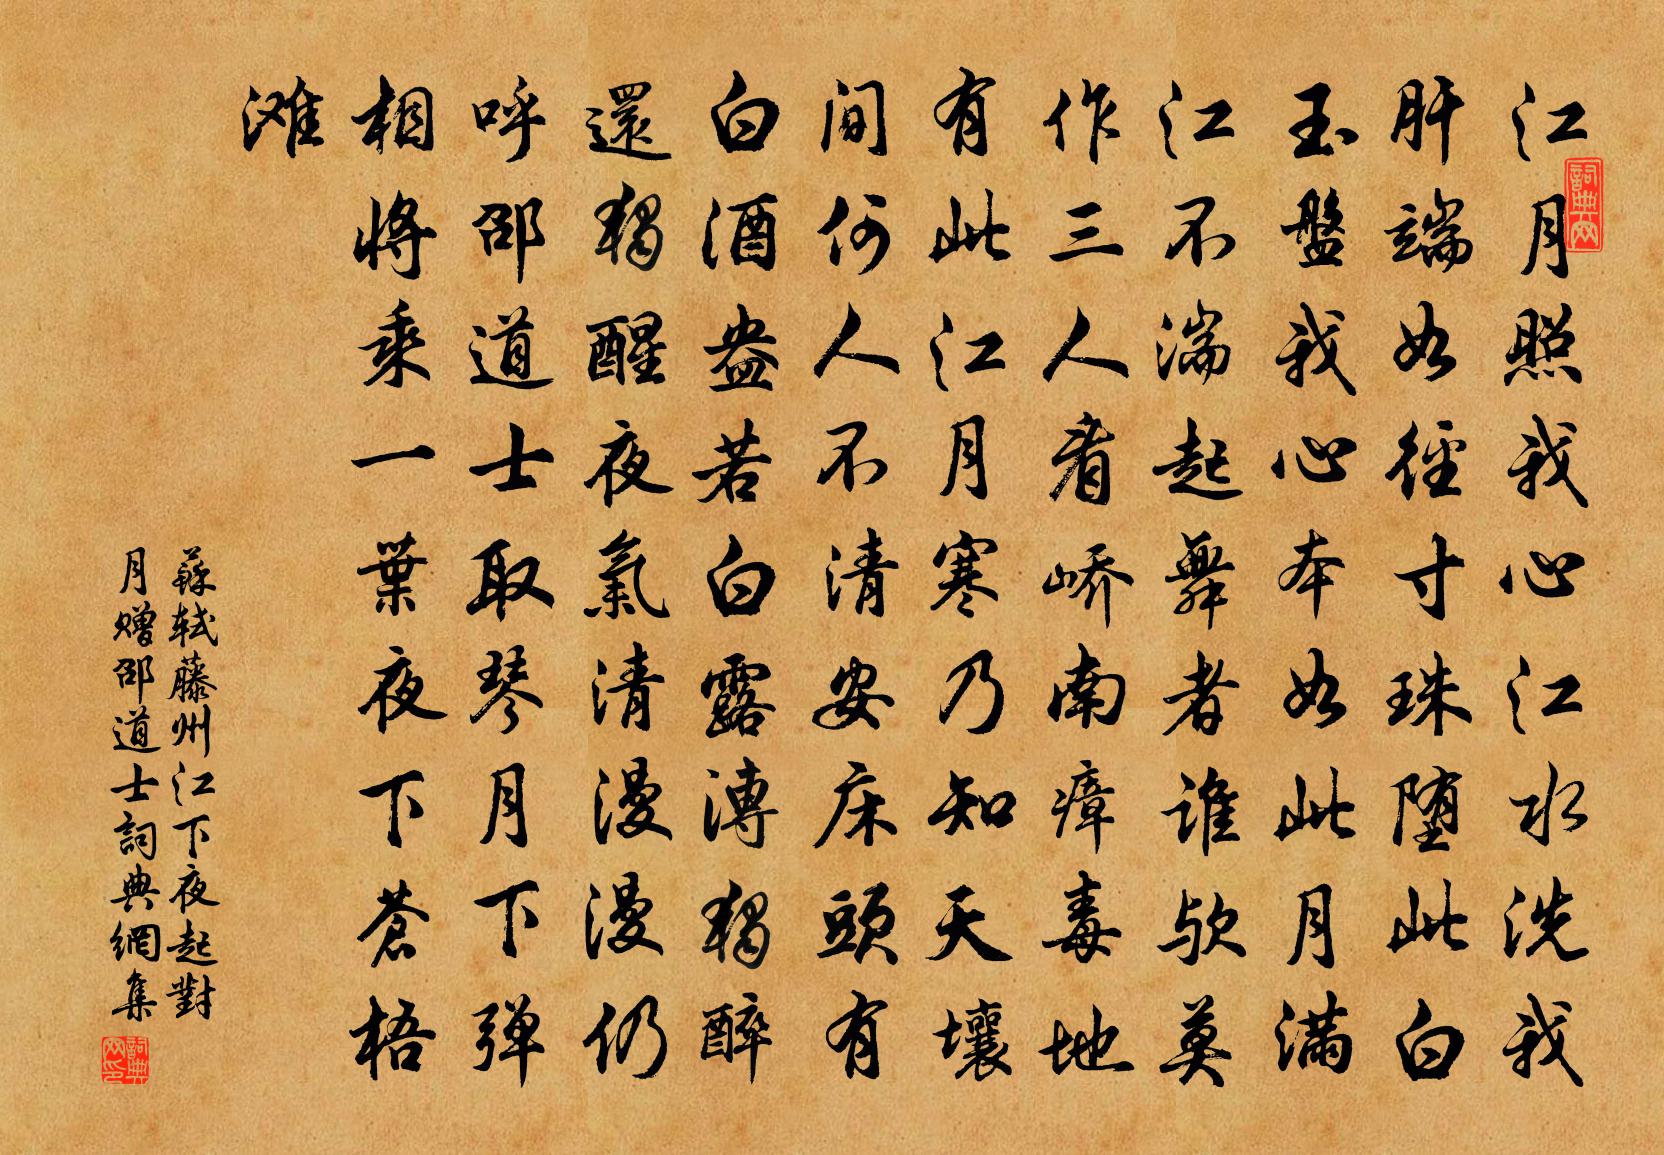 江月照我心江水洗我
肝端如徑寸珠堕此白
玉盤我心本如此月滿
江不湍起舞者誰歟莫
作三人看嶠南瘴毒地
有此江月寒乃知天壤
间何人不清安床頭有
白酒盎若白露漙獨醉
還獨醒夜氣清漫漫仍
呼邵道士取琴月下弹
相將乘一葉夜下蒼梧
滩
蘇軾藤州江下夜起對
月赠邵道士詞典網集
詞典网
詞典网印